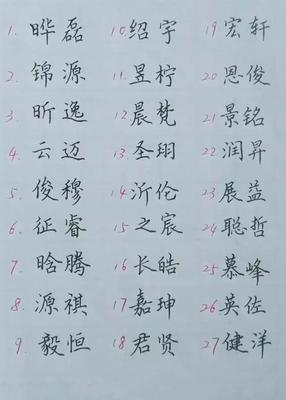 1. 晔磊
2. 锦源
3. 昕逸
4. 云迈
5. 俊穆
6. 征睿
7. 晗腾
8. 源祺
9. 毅恒
10 绍宇
11. 昱柠
12 晨梵
13 圣珝
14 沂伦
15 之宸
16 长皓
17 嘉珅
18 君贤
19 宏轩
20 恩俊
21 景铭
22 润昇
23 展益
24 聪哲
25 慕峰
26 英佐
27 健洋